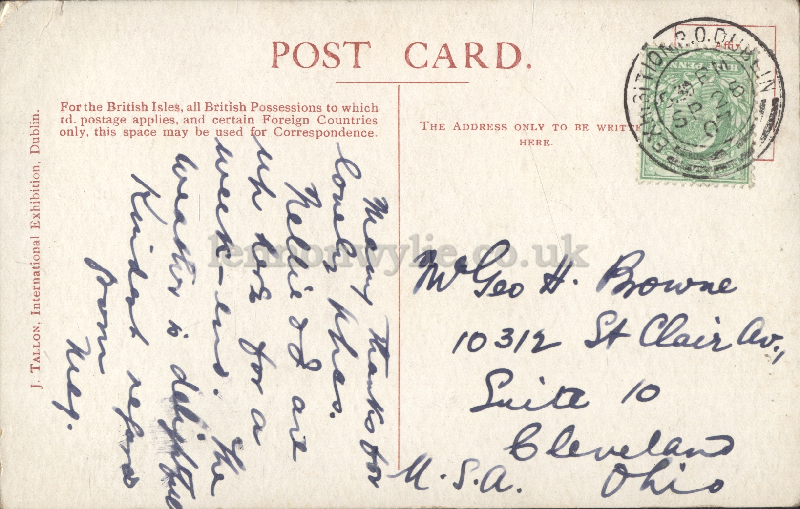 POST CARD.
For the British Isles, all British Possessions to which
1d. postage applies, and certain Foreign Countries
only, this space may be used for Correspondence.
THE ADDRESS ONLY TO BE WRITTEN
HERE.
J. TALLON, International Exhibition, Dublin.
EXHIBITION P.O. DUBLIN
Many thanks for
lovely
Nellie & I are
up here for a
week-end. The
weather is delightful
Kindest regards
from
Meg.
Mr Geo H. Browne
10312 St Clair Av.,
Suite 10
Cleveland
Ohio
U.S.A.
lennonwylie.co.uk